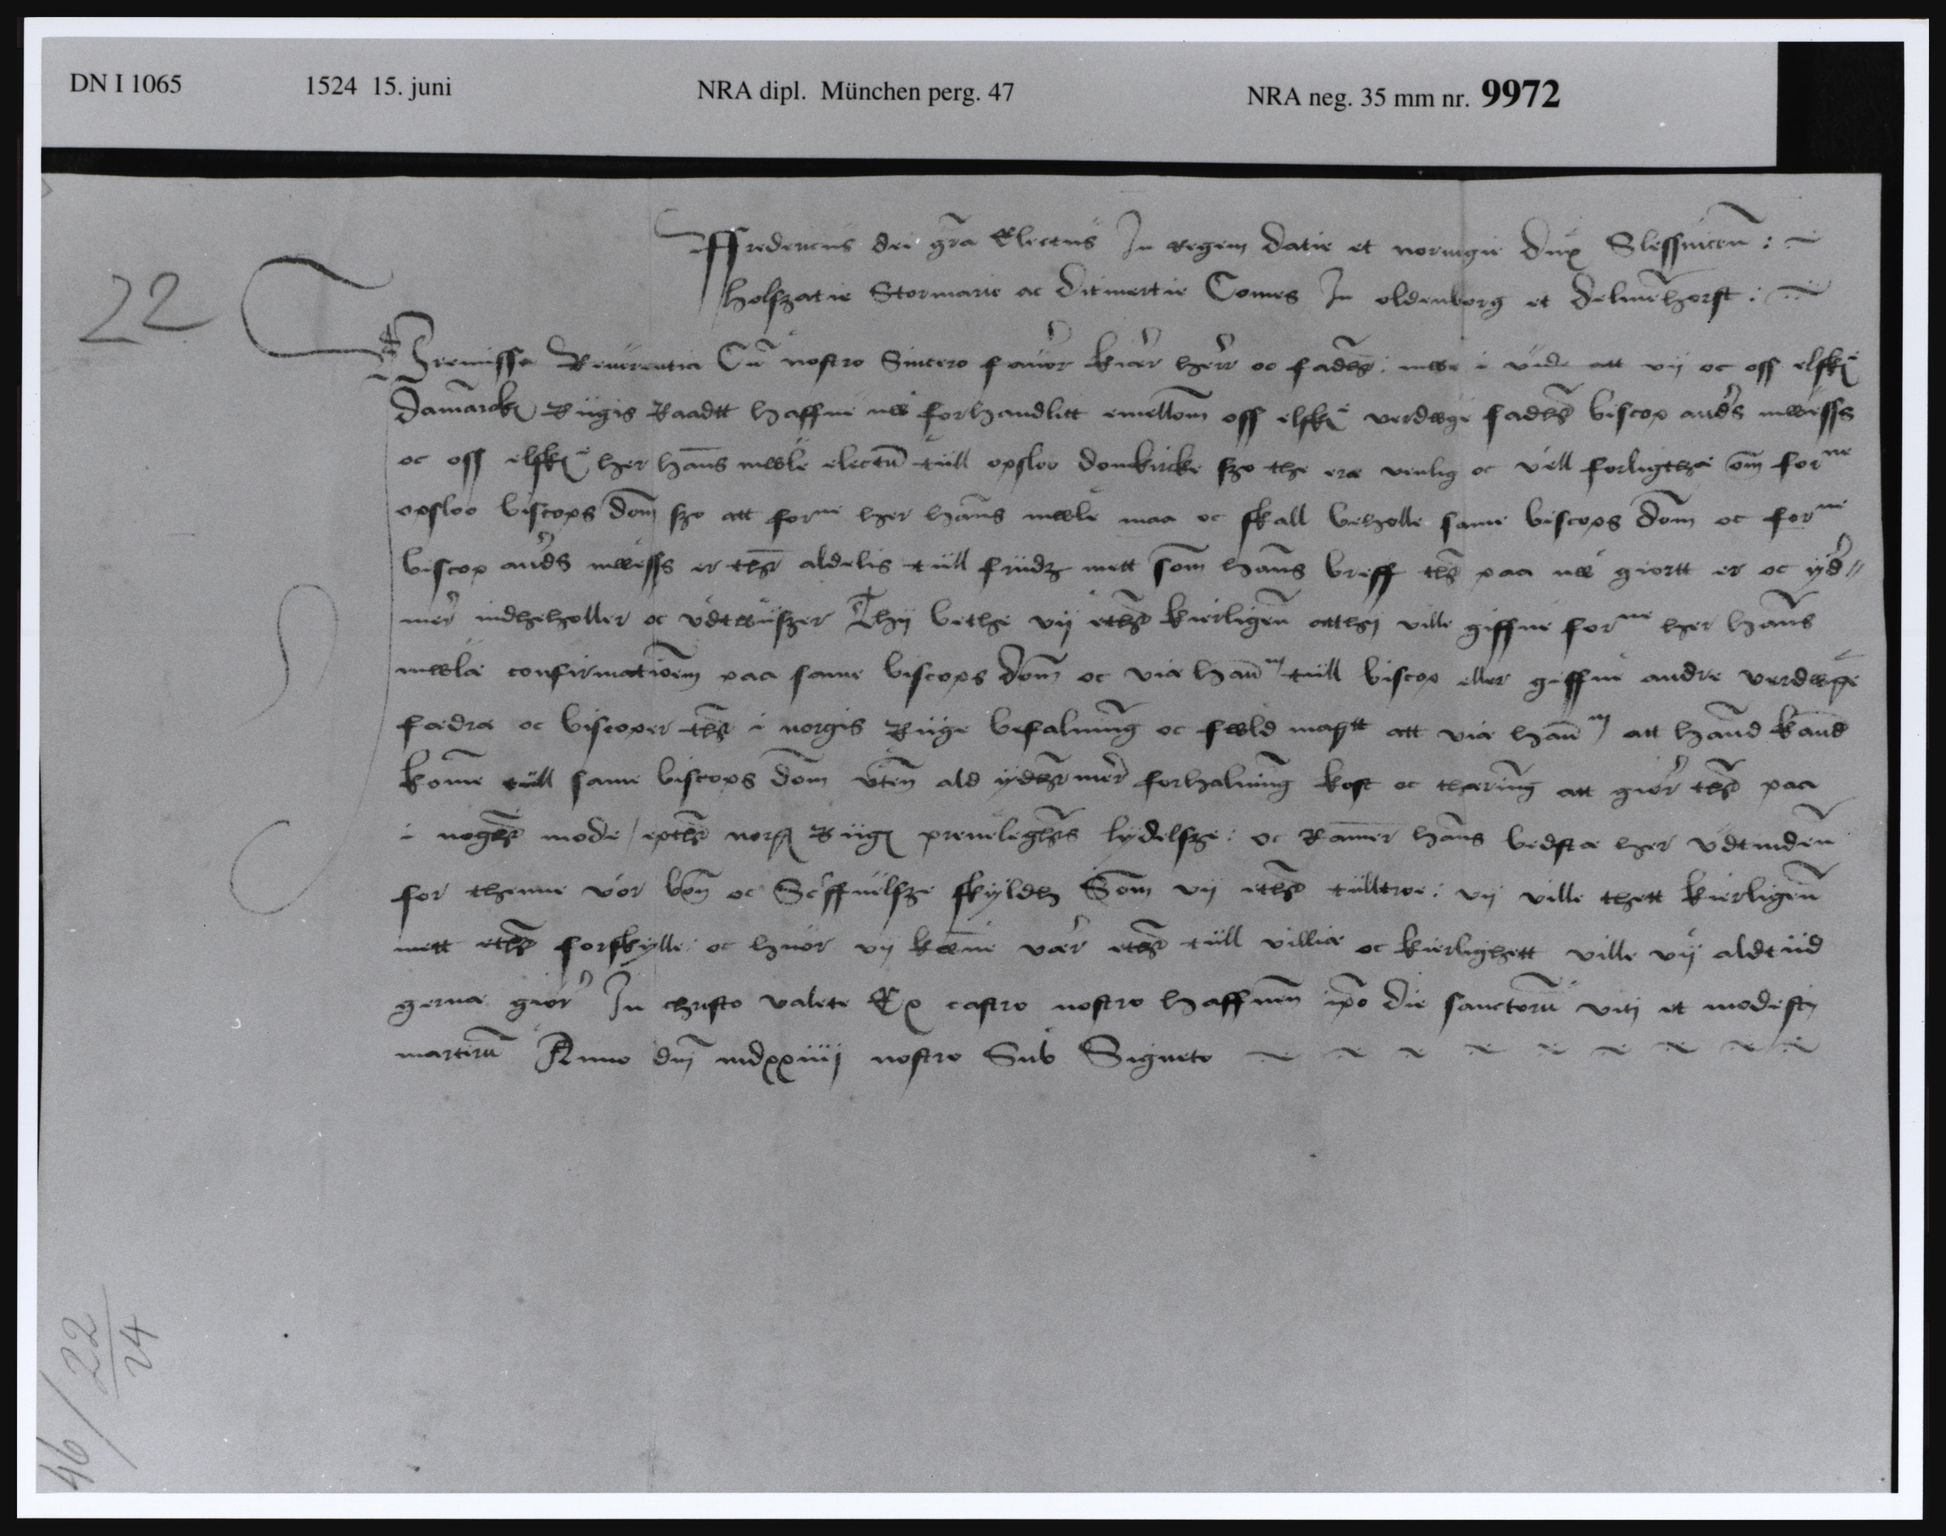 DN I 1065 1524 15. juni NRA dipl. München perg. 47 NRA neg. 35 mm nr. 9972
22
Ffredericus dei gra Electus In regem datie et norwegie dux Slessuicen :
holszatie Stormarie ac ditmertie Comes In oldenborg et delmehorst :
Premissa Reuerentia Cu nostro Sincero fauor kiær herr oc fadher mwe i vide att vij oc oss elske
Damarcks Riigis Raadtt haffue nw forhandlitt emellom oss elske verdwge fadher biscop anders mwess
oc oss elske her hans mwle electu tiill opsloo domkircke szo the ere venlig oc vell forligthæ om forne
opsloo biscops dom szo att forne her hans mwle maa oc skall beholle same biscops dom oc forne
biscop anders mwess er ther aldelis tiill friidz mett som hans breff ther paa nw giortt er oc yder
mer indheholler oc vdtwiiszer Thij bethe vij ether kierligen atthj ville giffue forne her hans
mwle confirmatioem paa same biscops dom oc vie hannom tiill biscop eller giffue andre verdwge
fædre oc biscoper ther i norgis Riige befalning oc fwld magtt att vie hannom att hand kand
kome tiill same biscops dom vten ald yddermer forhalning kost oc thæring att giør ther paa
i nogher mode epther norgis Riigis preueleghers lydelsze : oc Ramer hans bedste her vdtinden
for thenne vor bøn oc Scriffuelsze skyldh Som vij ether tiilltroe : vij ville thett kierligen
mett ether forskylle oc huor vij kwnne vær ether tiill villie oc kierlighett ville vij aldtiid
gerne giør In christo valete Ex castro nostro haffnen ipo die sanctoru viti et modesti
martiru Anno dnj mdxxiiij nostro Sub Signeto
46/22/24